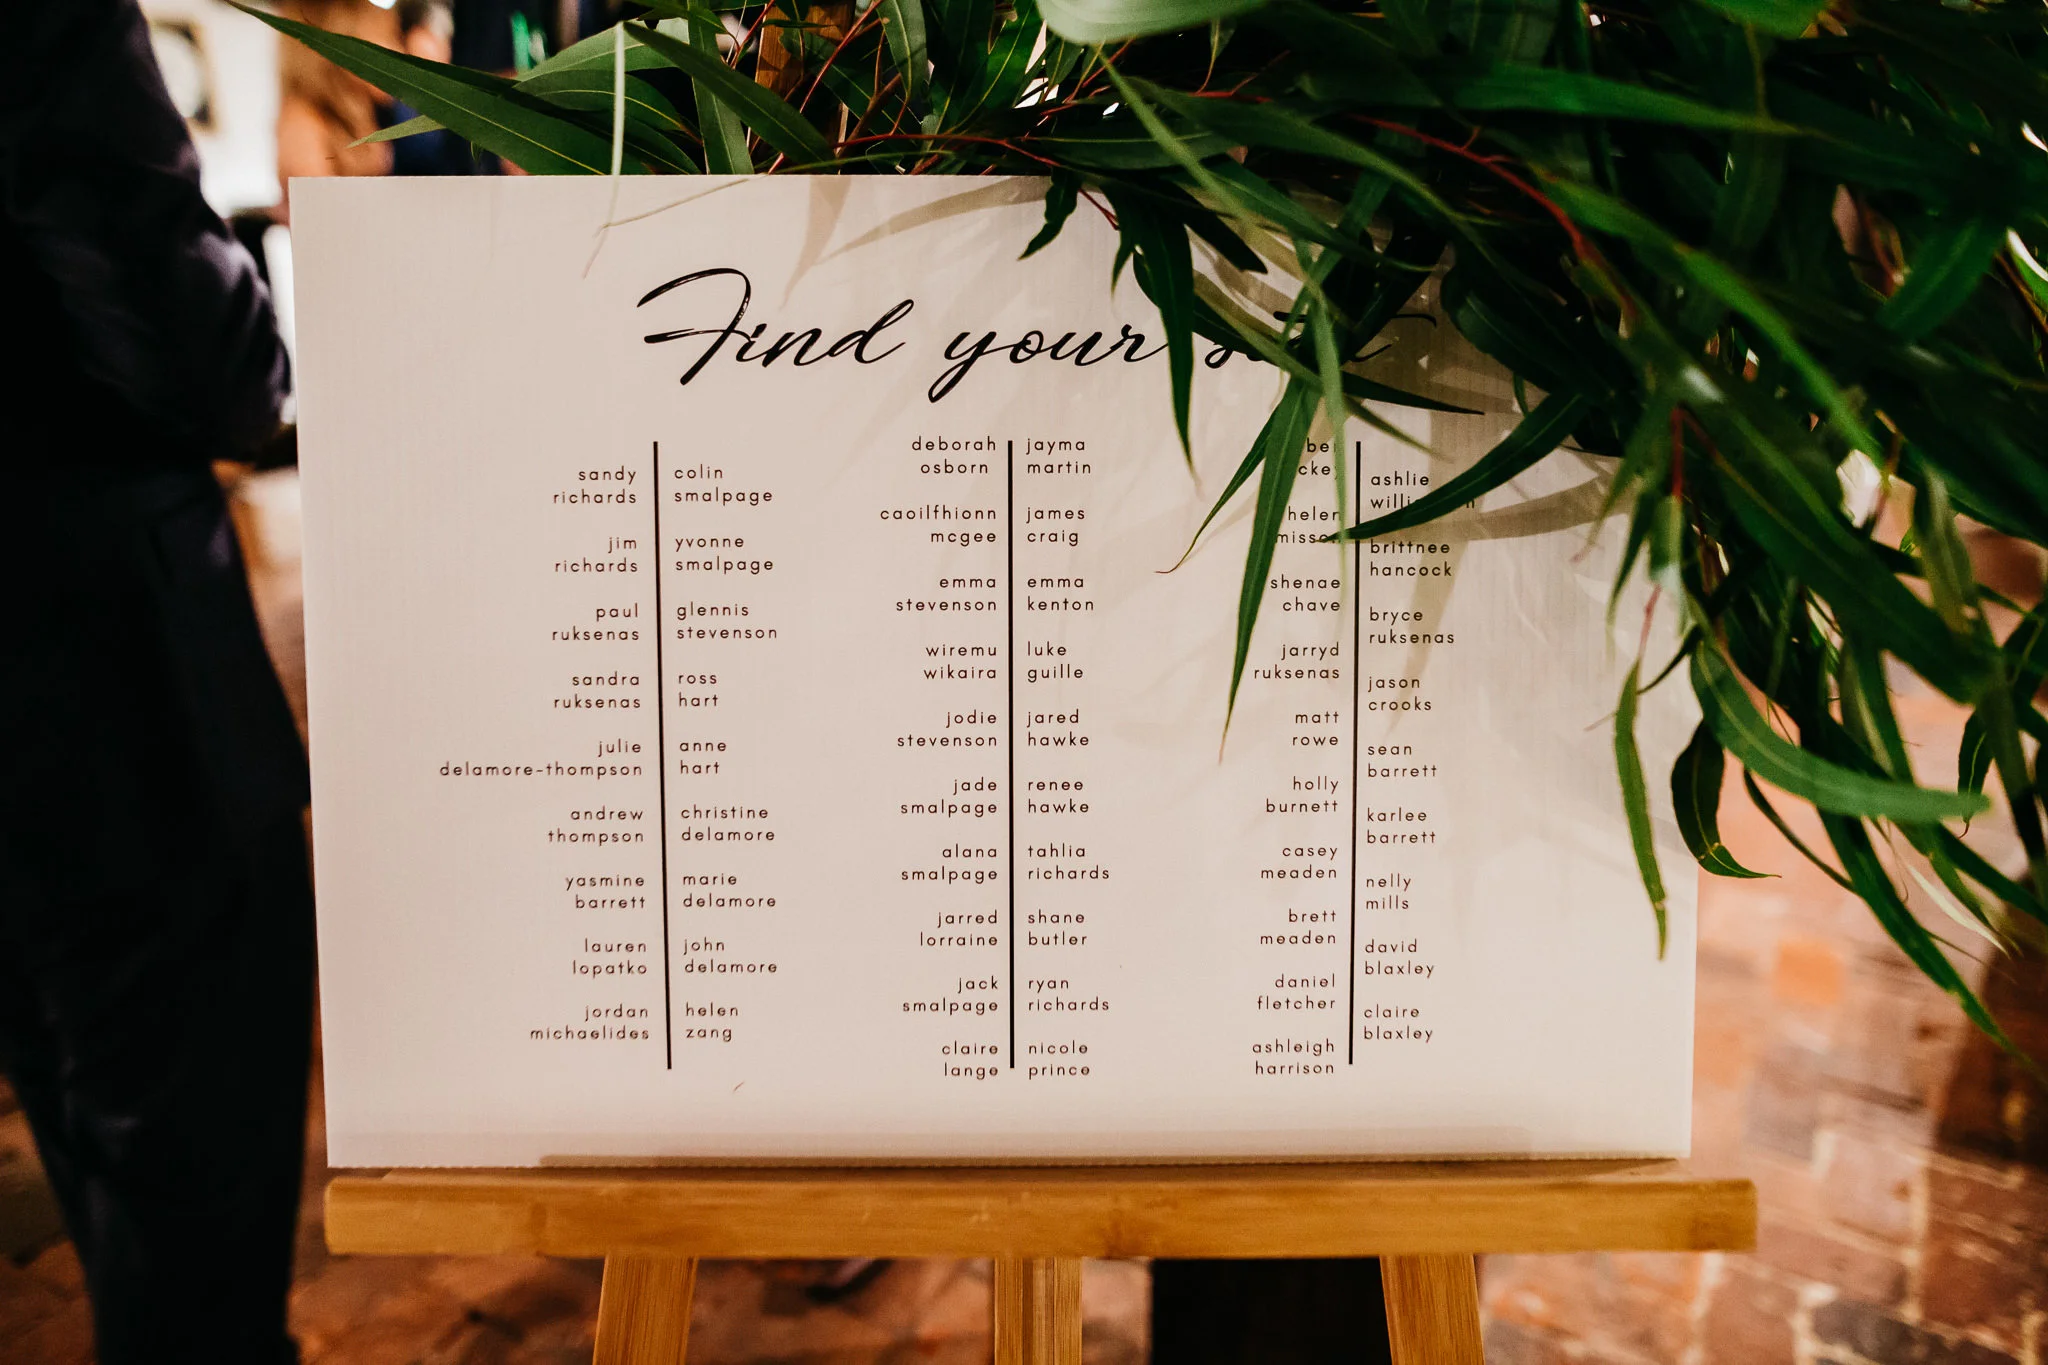 Find your
sandy
richards
jim
richards
paul
ruksenas
sandra
ruksenas
julie
delamore-thompson
andrew
thompson
yasmine
barrett
lauren
lopatko
jordan
michaelides
colin
smalpage
yvonne
smalpage
glennis
stevenson
ross
hart
anne
hart
christine
delamore
marie
delamore
john
delamore
helen
zang
deborah
osborn
caoilfhionn
mcgee
emma
stevenson
wiremu
wikaira
jodie
stevenson
jade
smalpage
alana
smalpage
jarred
lorraine
jack
smalpage
claire
lange
jayma
martin
james
craig
emma
kenton
luke
guille
jared
hawke
renee
hawke
tahlia
richards
shane
butler
ryan
richards
nicole
prince
helen
shenae
chave
jarryd
ruksenas
matt
rowe
holly
burnett
casey
meaden
brett
meaden
daniel
fletcher
ashleigh
harrison
ashlie
brittnee
hancock
bryce
ruksenas
jason
crooks
sean
barrett
karlee
barrett
nelly
mills
david
blaxley
claire
blaxley